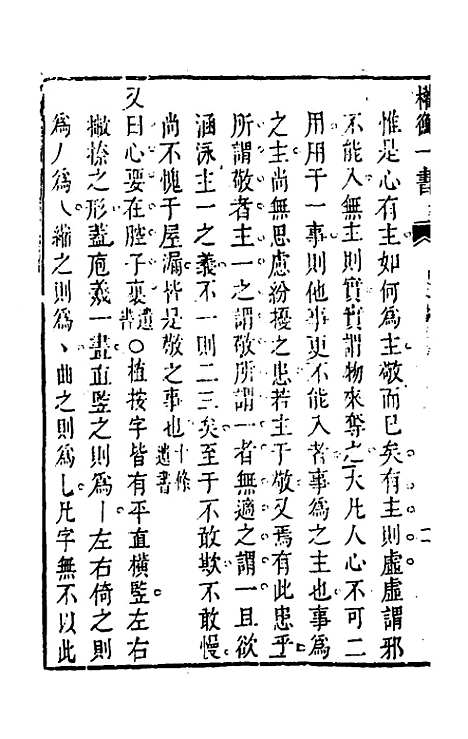 權衡一書
惟是心有主如何為主敬而已矣有主則虛虛謂邪
不能入無主則實實謂物來奪之大凡人心不可二
用用于一事則他事更不能入者事為之主也事為
之主尚無思慮紛擾之患若主于敬又焉有此患乎
所謂敬者主一之謂敬所謂一者無適之謂一且欲
涵泳主一之義不一則二三矣至于不敢欺不敢慢
尚不愧于屋漏皆是敬之事也十條遺書
又曰心要在腔子裏遺書○植按字皆有平直橫竪左右
撇捺之形蓋庖羲一畫直竪之則為丨左右倚之則
為丿為乀縮之則為丶曲之則為乚凡字無不以此